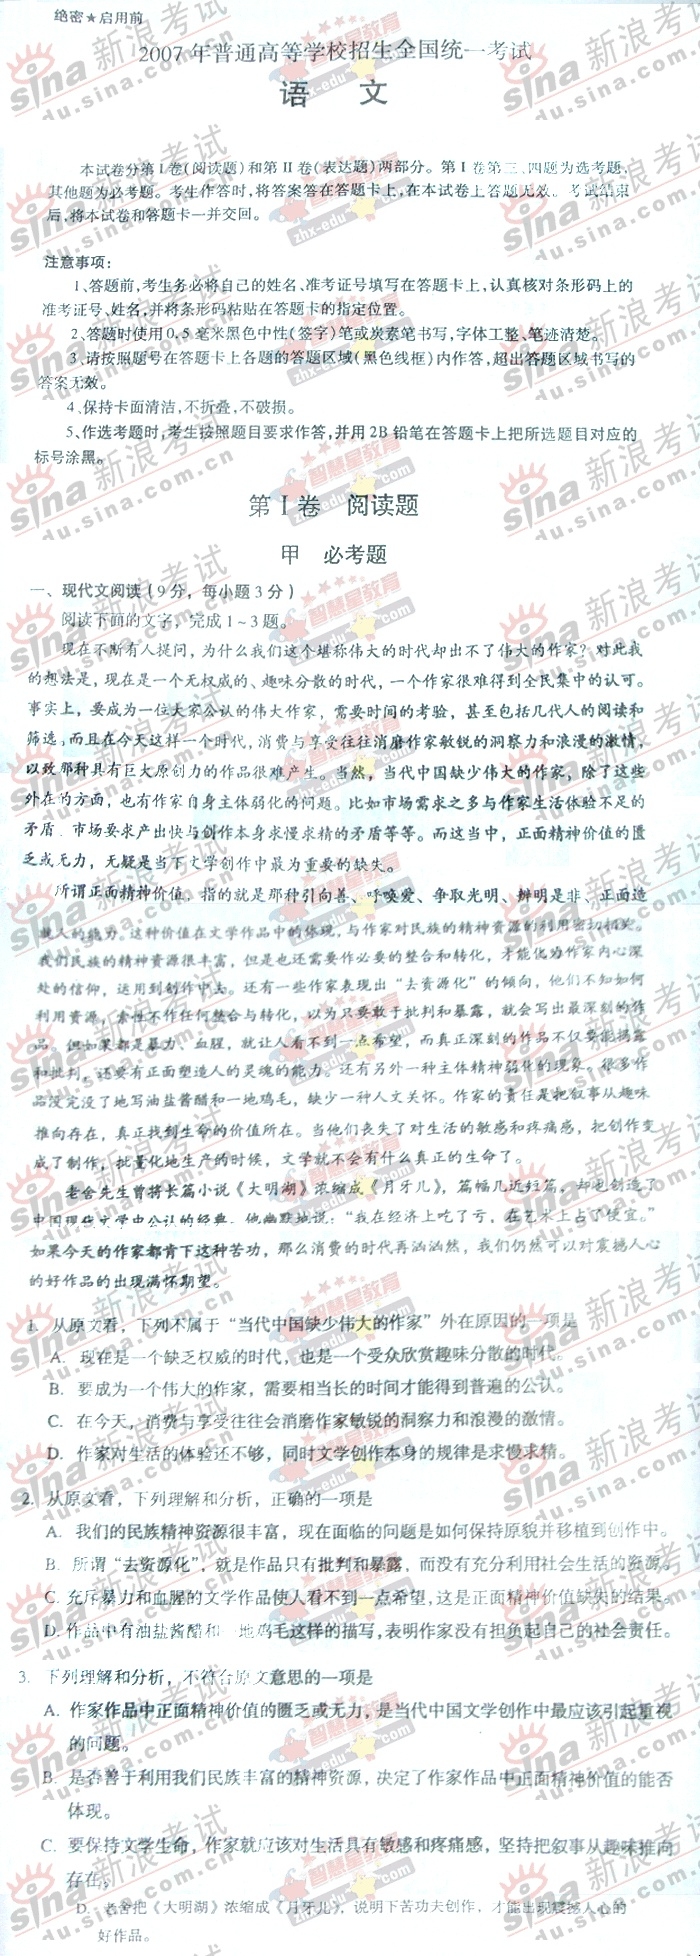 绝密★启用前
2007年普通高等学校招生全国统一考试
语 文
本试卷分第Ⅰ卷(阅读题)和第Ⅱ卷(表达题)两部分。第Ⅰ卷第三、四题为选考题,
其他题为必考题。考生作答时,将答案答在答题卡上,在本试卷上答题无效。考试结束
后,将本试卷和答题卡一并交回。
注意事项:
1、答题前,考生务必将自己的姓名、准考证号填写在答题卡上,认真核对条形码上的
准考证号、姓名,并将条形码粘贴在答题卡的指定位置。
2、答题时使用0.5毫米黑色中性(签字)笔或炭素笔书写,字体工整、笔迹清楚。
3、请按照题号在答题卡上各题的答题区域(黑色线框)内作答,超出答题区域书写的
答案无效。
4、保持卡面清洁,不折叠,不破损。
5、作选考题时,考生按照题目要求作答,并用2B铅笔在答题卡上把所选题目对应的
标号涂黑。
第Ⅰ卷 阅读题
甲 必考题
一、现代文阅读(9分,每小题3分)
阅读下面的文字,完成1~3题。
现在不断有人提问,为什么我们这个堪称伟大的时代却出不了伟大的作家?对此我
的想法是,现在是一个无权威的、趣味分散的时代,一个作家很难得到全民集中的认可。
事实上,要成为一位大家公认的伟大作家,需要时间的考验,甚至包括几代人的阅读和
筛选。而且在今天这样一个时代,消费与享受往往消磨作家敏锐的洞察力和浪漫的激情,
以致那种具有巨大原创力的作品很难产生。当然,当代中国缺少伟大的作家,除了这些
外在的方面,也有作家自身主体弱化的问题。比如市场需求之多与作家生活体验不足的
矛盾,市场要求产出快与创作本身求慢求精的矛盾等等。而这当中,正面精神价值的匮
乏或无力,无疑是当下文学创作中最为重要的缺失。
所谓正面精神价值,指的就是那种引向善、呼唤爱、争取光明、辨明是非、正面造
就人的能力。这种价值在文学作品中的体现,与作家对民族的精神资源的利用密切相关。
我们民族的精神资源很丰富,但是也还需要作必要的整合和转化,才能化为作家内心深
处的信仰,运用到创作中去。还有一些作家表现出“去资源化”的倾向,他们不知如何
利用资源,索性不作任何整合与转化,以为只要敢于批判和暴露,就会写出最深刻的作
品。但如果都是暴力、血腥,就让人看不到一点希望,而真正深刻的作品不仅要能揭露
和批判,还要有正面塑造人的灵魂的能力。还有另外一种主体精神弱化的现象。很多作
品没完没了地写油盐酱醋和一地鸡毛,缺少一种人文关怀。作家的责任是把叙事从趣味
推向存在,真正找到生命的价值所在。当他们丧失了对生活的敏感和疼痛感,把创作变
成了制作,批量化地生产的时候,文学就不会有什么真正的生命了。
老舍先生曾将长篇小说《大明湖》浓缩成《月牙儿》,篇幅几近短篇,却也创造了
中国现代文学中公认的经典。他幽默地说:“我在经济上吃了亏,在艺术上占了便宜。”
如果今天的作家都肯下这种苦功,那么消费的时代再汹汹然,我们仍然可以对震撼人心
的好作品的出现满怀期望。
1. 从原文看,下列不属于“当代中国缺少伟大的作家”外在原因的一项是
A. 现在是一个缺乏权威的时代,也是一个受众欣赏趣味分散的时代。
B. 要成为一个伟大的作家,需要相当长的时间才能得到普遍的公认。
C. 在今天,消费与享受往往会消磨作家敏锐的洞察力和浪漫的激情。
D. 作家对生活的体验还不够,同时文学创作本身的规律是求慢求精。
2. 从原文看,下列理解和分析,正确的一项是
A. 我们的民族精神资源很丰富,现在面临的问题是如何保持原貌并移植到创作中。
B. 所谓“去资源化”,就是作品只有批判和暴露,而没有充分利用社会生活的资源。
C. 充斥暴力和血腥的文学作品使人看不到一点希望,这是正面精神价值缺失的结果。
D. 作品中有油盐酱醋和一地鸡毛这样的描写,表明作家没有担负起自己的社会责任。
3. 下列理解和分析,不符合原文意思的一项是
A. 作家作品中正面精神价值的匮乏或无力,是当代中国文学创作中最应该引起重视
的问题。
B. 是否善于利用我们民族丰富的精神资源,决定了作家作品中正面精神价值的能否
体现。
C. 要保持文学生命,作家就应该对生活具有敏感和疼痛感,坚持把叙事从趣味推向
存在。
D. 老舍把《大明湖》浓缩成《月牙儿》,说明下苦功夫创作,才能出现震撼人心的
好作品。